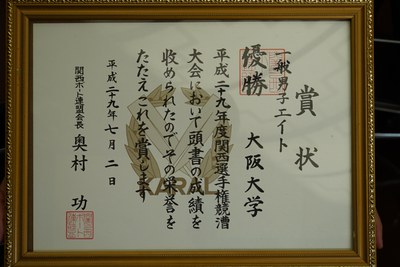 賞状
一般男子エイト
優勝
大阪大学
平成二十九年度関西選手権競漕
大会において頭書の成績を
収められたのでその栄誉を
たたえこれを賞します
平成二十九年七月二日
関西ボート連盟会長 奥村 功
KARA